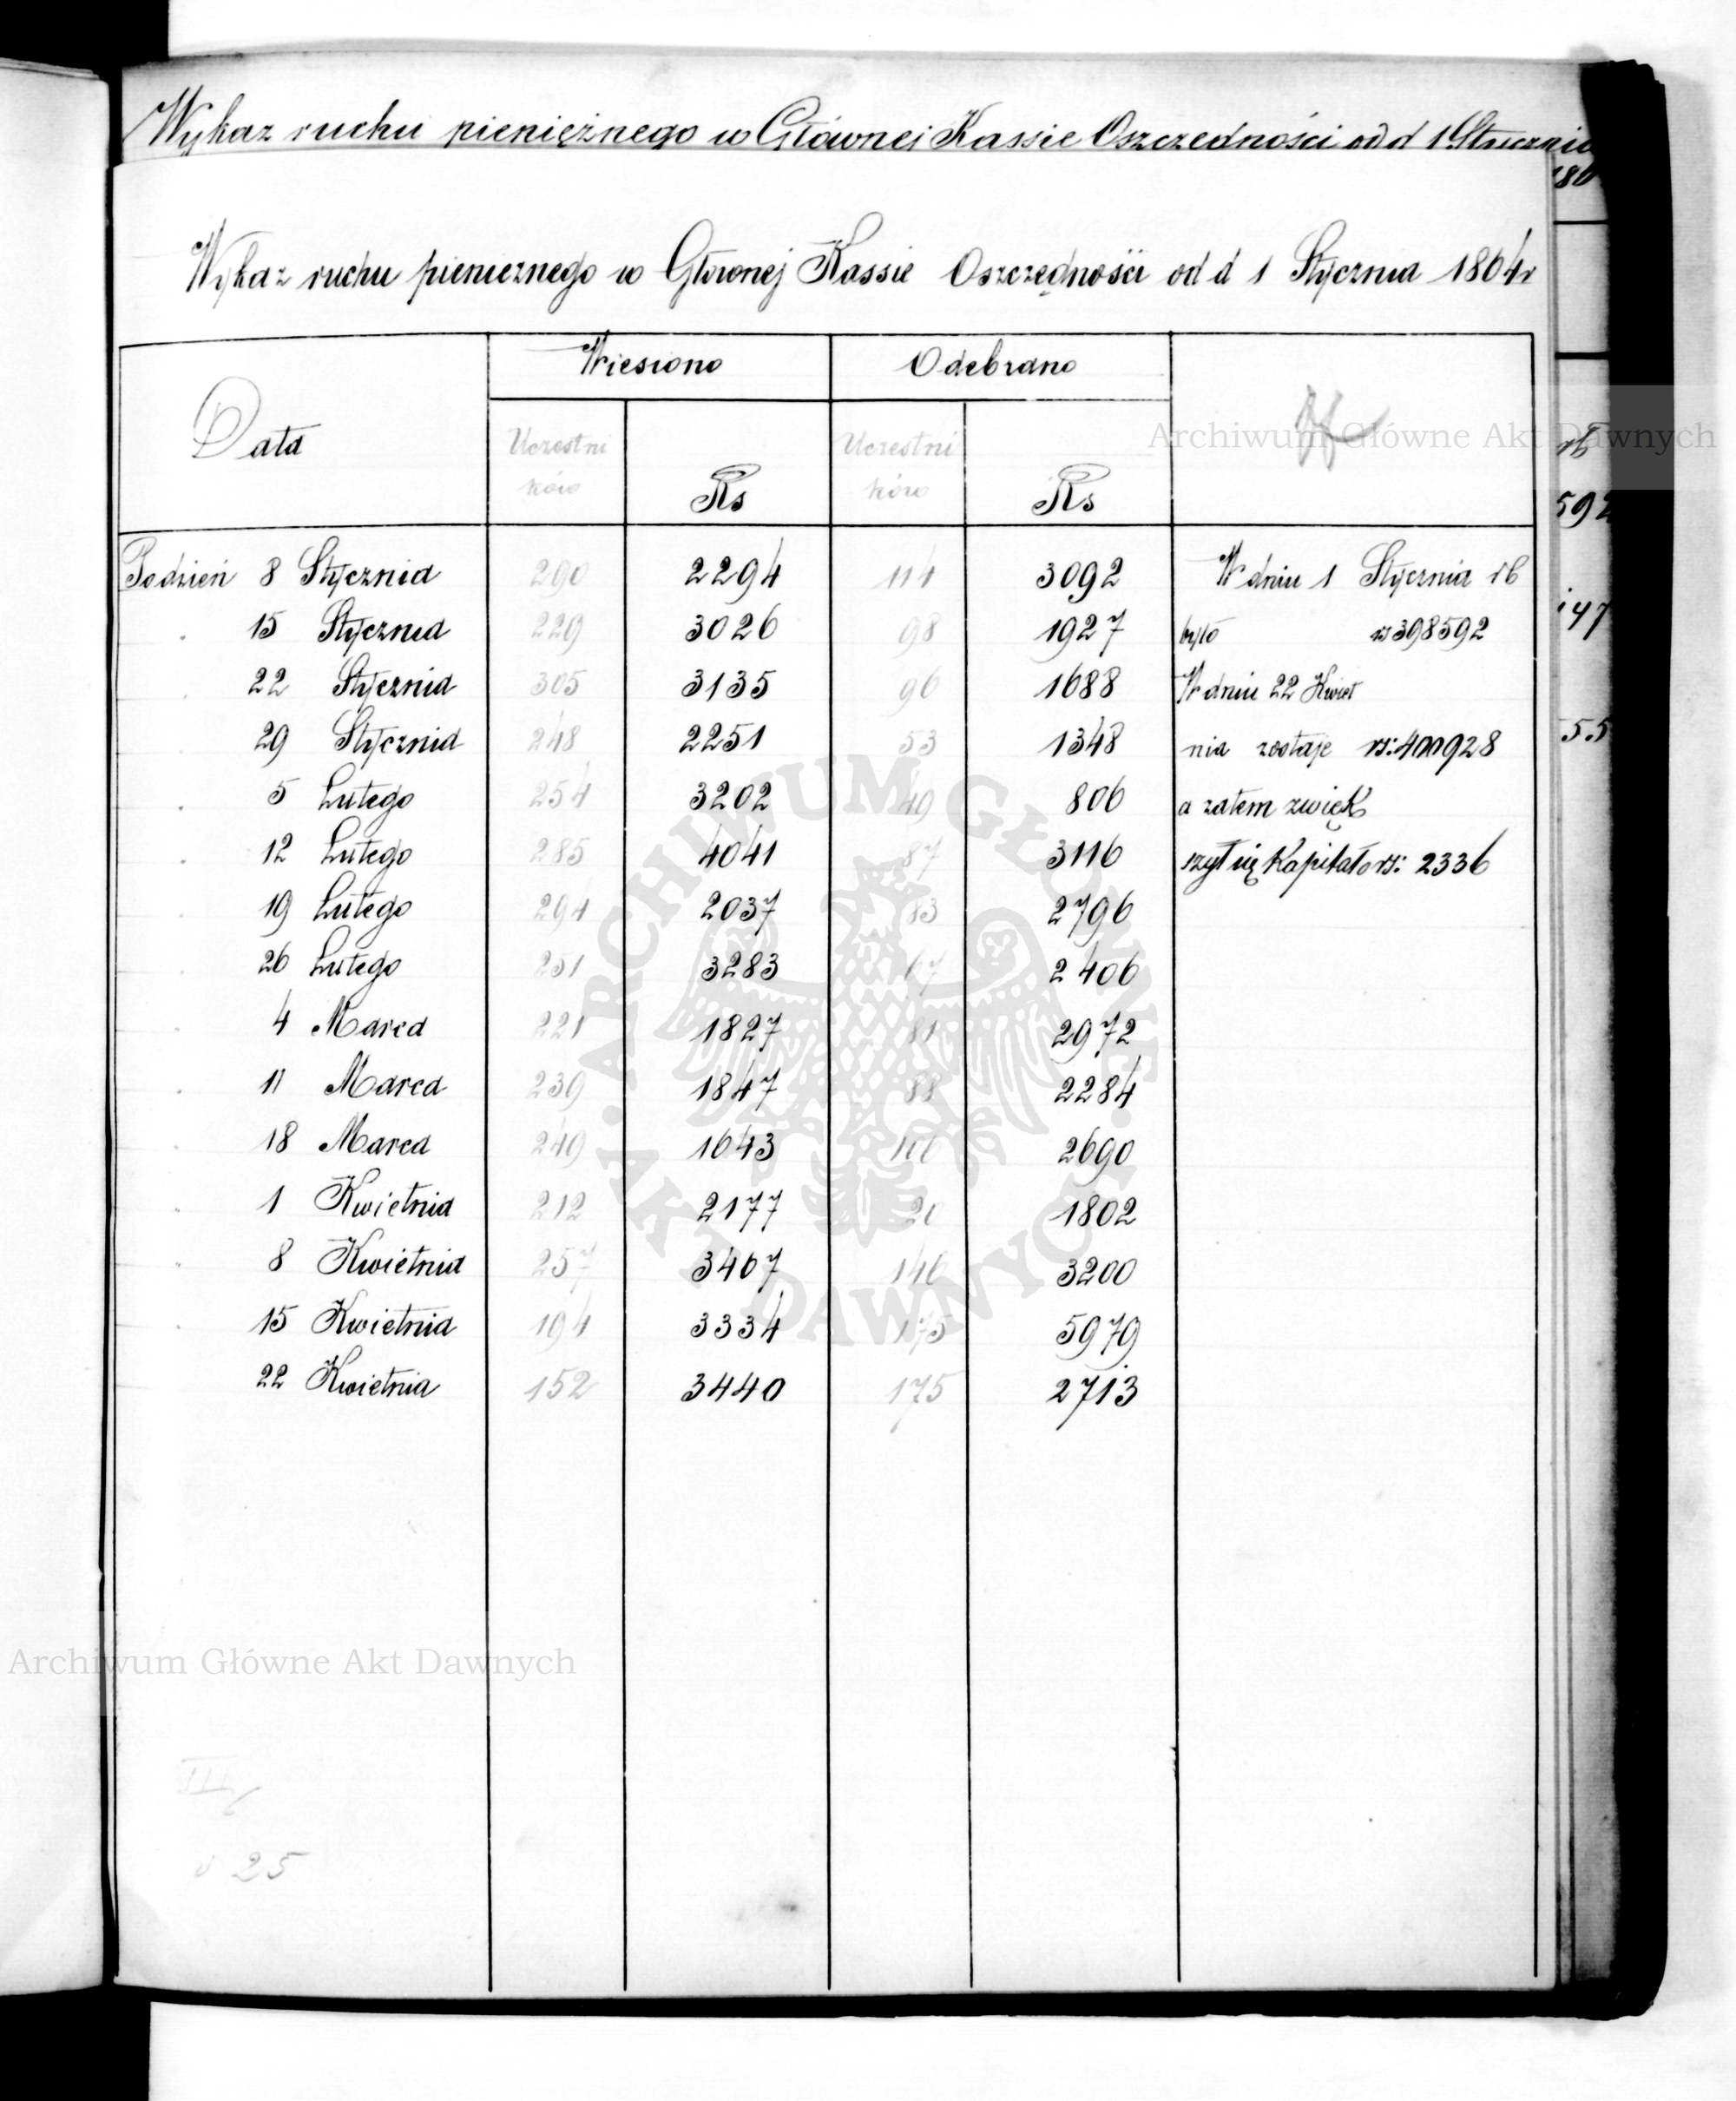 Wykaz ruchu pieniężnego w Głównej Kassie Oszczedności od d 1 Stycznia
186
Wykaz ruchu pienieznego w Głownej Kassie Oszczędnośći od d 1 Stycznia 1864r
Data
Wiesiono
Odebrano
Uczestni
ków
Rs
Uczestni
ków
Rs
rb
592
Podzień 8 Stycznia 290 2294 114 3092 W dniu 1 Stycznia rb
15 Stycznia 229 3026 98 1927 było rs 398592
147
22 Stycznia 305 3135 96 1688 W dniu 22 Kwiet
29 Stycznia 248 2251 53 1348 nia zostaje rs: 400928
55
5 Lutego 254 3202 49 806 a zatem zwięk
12 Lutego 285 4041 87 3116 szył się Kapitał o rs: 2336
19 Lutego 294 2037 83 2796
26 Lutego 251 3283 67 2406
4 Marca 221 1827 81 2972
11 Marca 239 1847 88 2284
18 Marca 249 1643 106 2690
1 Kwietnia 212 2177 20 1802
8 Kwietnia 257 3467 146 3200
15 Kwietnia 194 3334 175 5979
22 Kwietnia 152 3440 175 2713
25
Archiwum Główne Akt Dawnych
Archiwum Główne Akt Dawnych
ARCHIWUM GŁÓWNE
AKT DAWNYCH